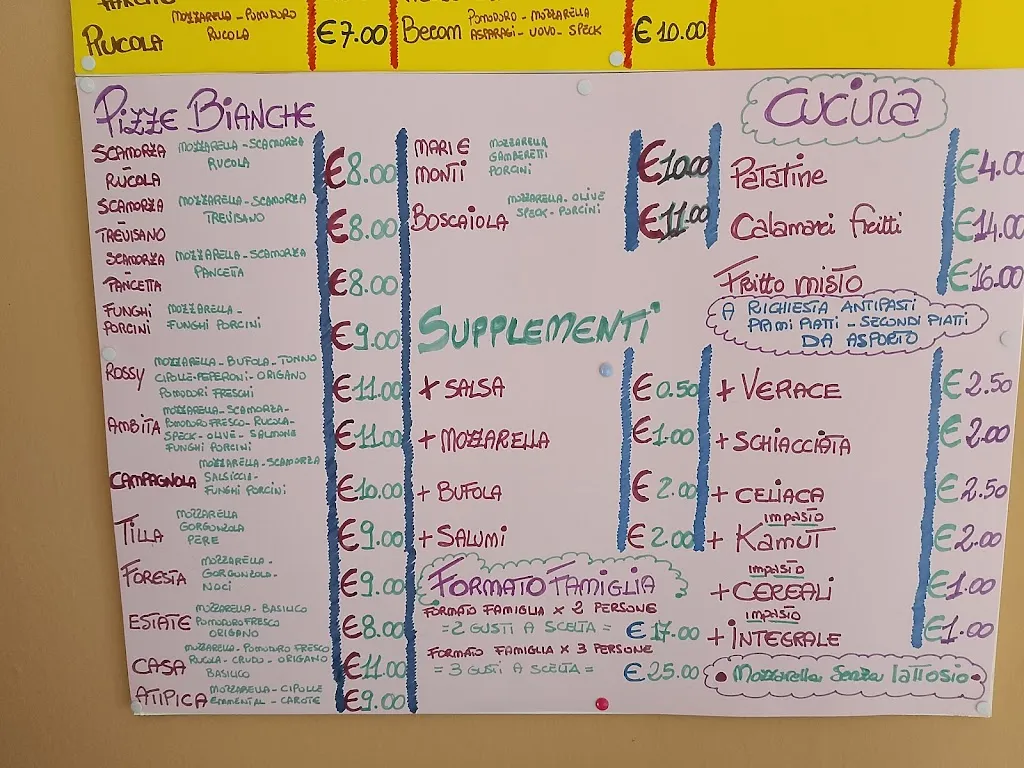 RUCOLA MOZZARELLA - POMODORO
RUCOLA €7.00
Becom POMODORO - MOZZARELLA
ASPARAGI - UOVO - SPECK €10.00
PIZZE BIANCHE
SCAMORZA MOZZARELLA - SCAMORZA
RUCOLA RUCOLA €8.00
SCAMORZA MOZZARELLA - SCAMORZA
TREVISANO TREVISANO €8.00
SCAMORZA MOZZARELLA - SCAMORZA
PANCETTA PANCETTA €8.00
FUNGHI MOZZARELLA -
PORCINI FUNGHI PORCINI €9.00
ROSSY MOZZARELLA - BUFOLA - TONNO
CIPOLLE - PEPERONI - ORIGANO
POMODORI FRESCHI €11.00
AMBITA MOZZARELLA - SCAMORZA -
POMODORO FRESCO - RUCOLA -
SPECK - OLIVE - SALMONE
FUNGHI PORCINI €11.00
CAMPAGNOLA MOZZARELLA - SCAMORZA
SALSICCIA -
FUNGHI PORCINI €10.00
TILLA MOZZARELLA
GORGONZOLA
PERE €9.00
FORESTA MOZZARELLA -
GORGONZOLA -
NOCI €9.00
ESTATE MOZZARELLA - BASILICO
POMODORO FRESCO
ORIGANO €8.00
CASA MOZZARELLA - POMODORO FRESCO
RUCOLA - CRUDO - ORIGANO
BASILICO €11.00
ATIPICA MOZZARELLA - CIPOLLE
EMMENTAL - CAROTE €9.00
MARI E MOZZARELLA
MONTI GAMBERETTI
PORCINI €10.00
BOSCAIOLA MOZZARELLA - OLIVE
SPECK - PORCINI €11.00
SUPPLEMENTI
+ SALSA €0.50
+ MOZZARELLA €1.00
+ BUFOLA €2.00
+ SALUMI €2.00
FORMATO FAMIGLIA
FORMATO FAMIGLIA x 2 PERSONE
= 2 GUSTI A SCELTA = €17.00
FORMATO FAMIGLIA x 3 PERSONE
= 3 GUSTI A SCELTA = €25.00
CUCINA
Patatine €4.00
Calamari fritti €14.00
Fritto misto €16.00
A RICHIESTA ANTIPASTI
PRIMI PIATTI - SECONDI PIATTI
DA ASPORTO
+ VERACE €2.50
+ SCHIACCIATA €2.00
+ CELIACA €2.50
IMPASTO
+ KAMUT €2.00
IMPASTO
+ CEREALI €1.00
IMPASTO
+ INTEGRALE €1.00
Mozzarella Senza lattosio